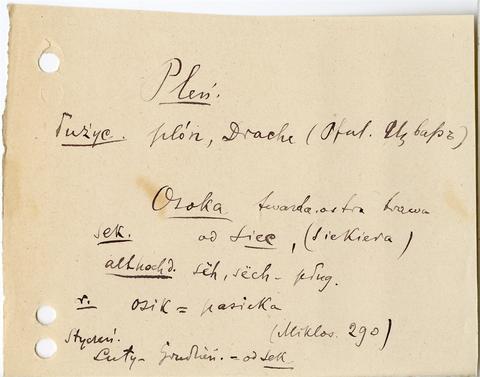 Pleń.
Łużyc. plón, Drache (
Osoka twarda ostra trawa
sek. od siec, (siekiera)
althochd. sëh, sëch - pług.
r. osik = pasieka
(Miklos. 290)
Styczeń.
Luty - Grudzień. - od sek